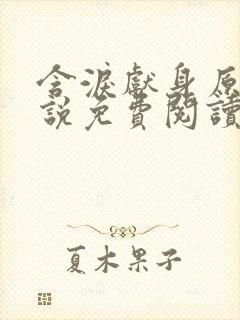 含淚獻身原
說免費閱讀
夏木果子